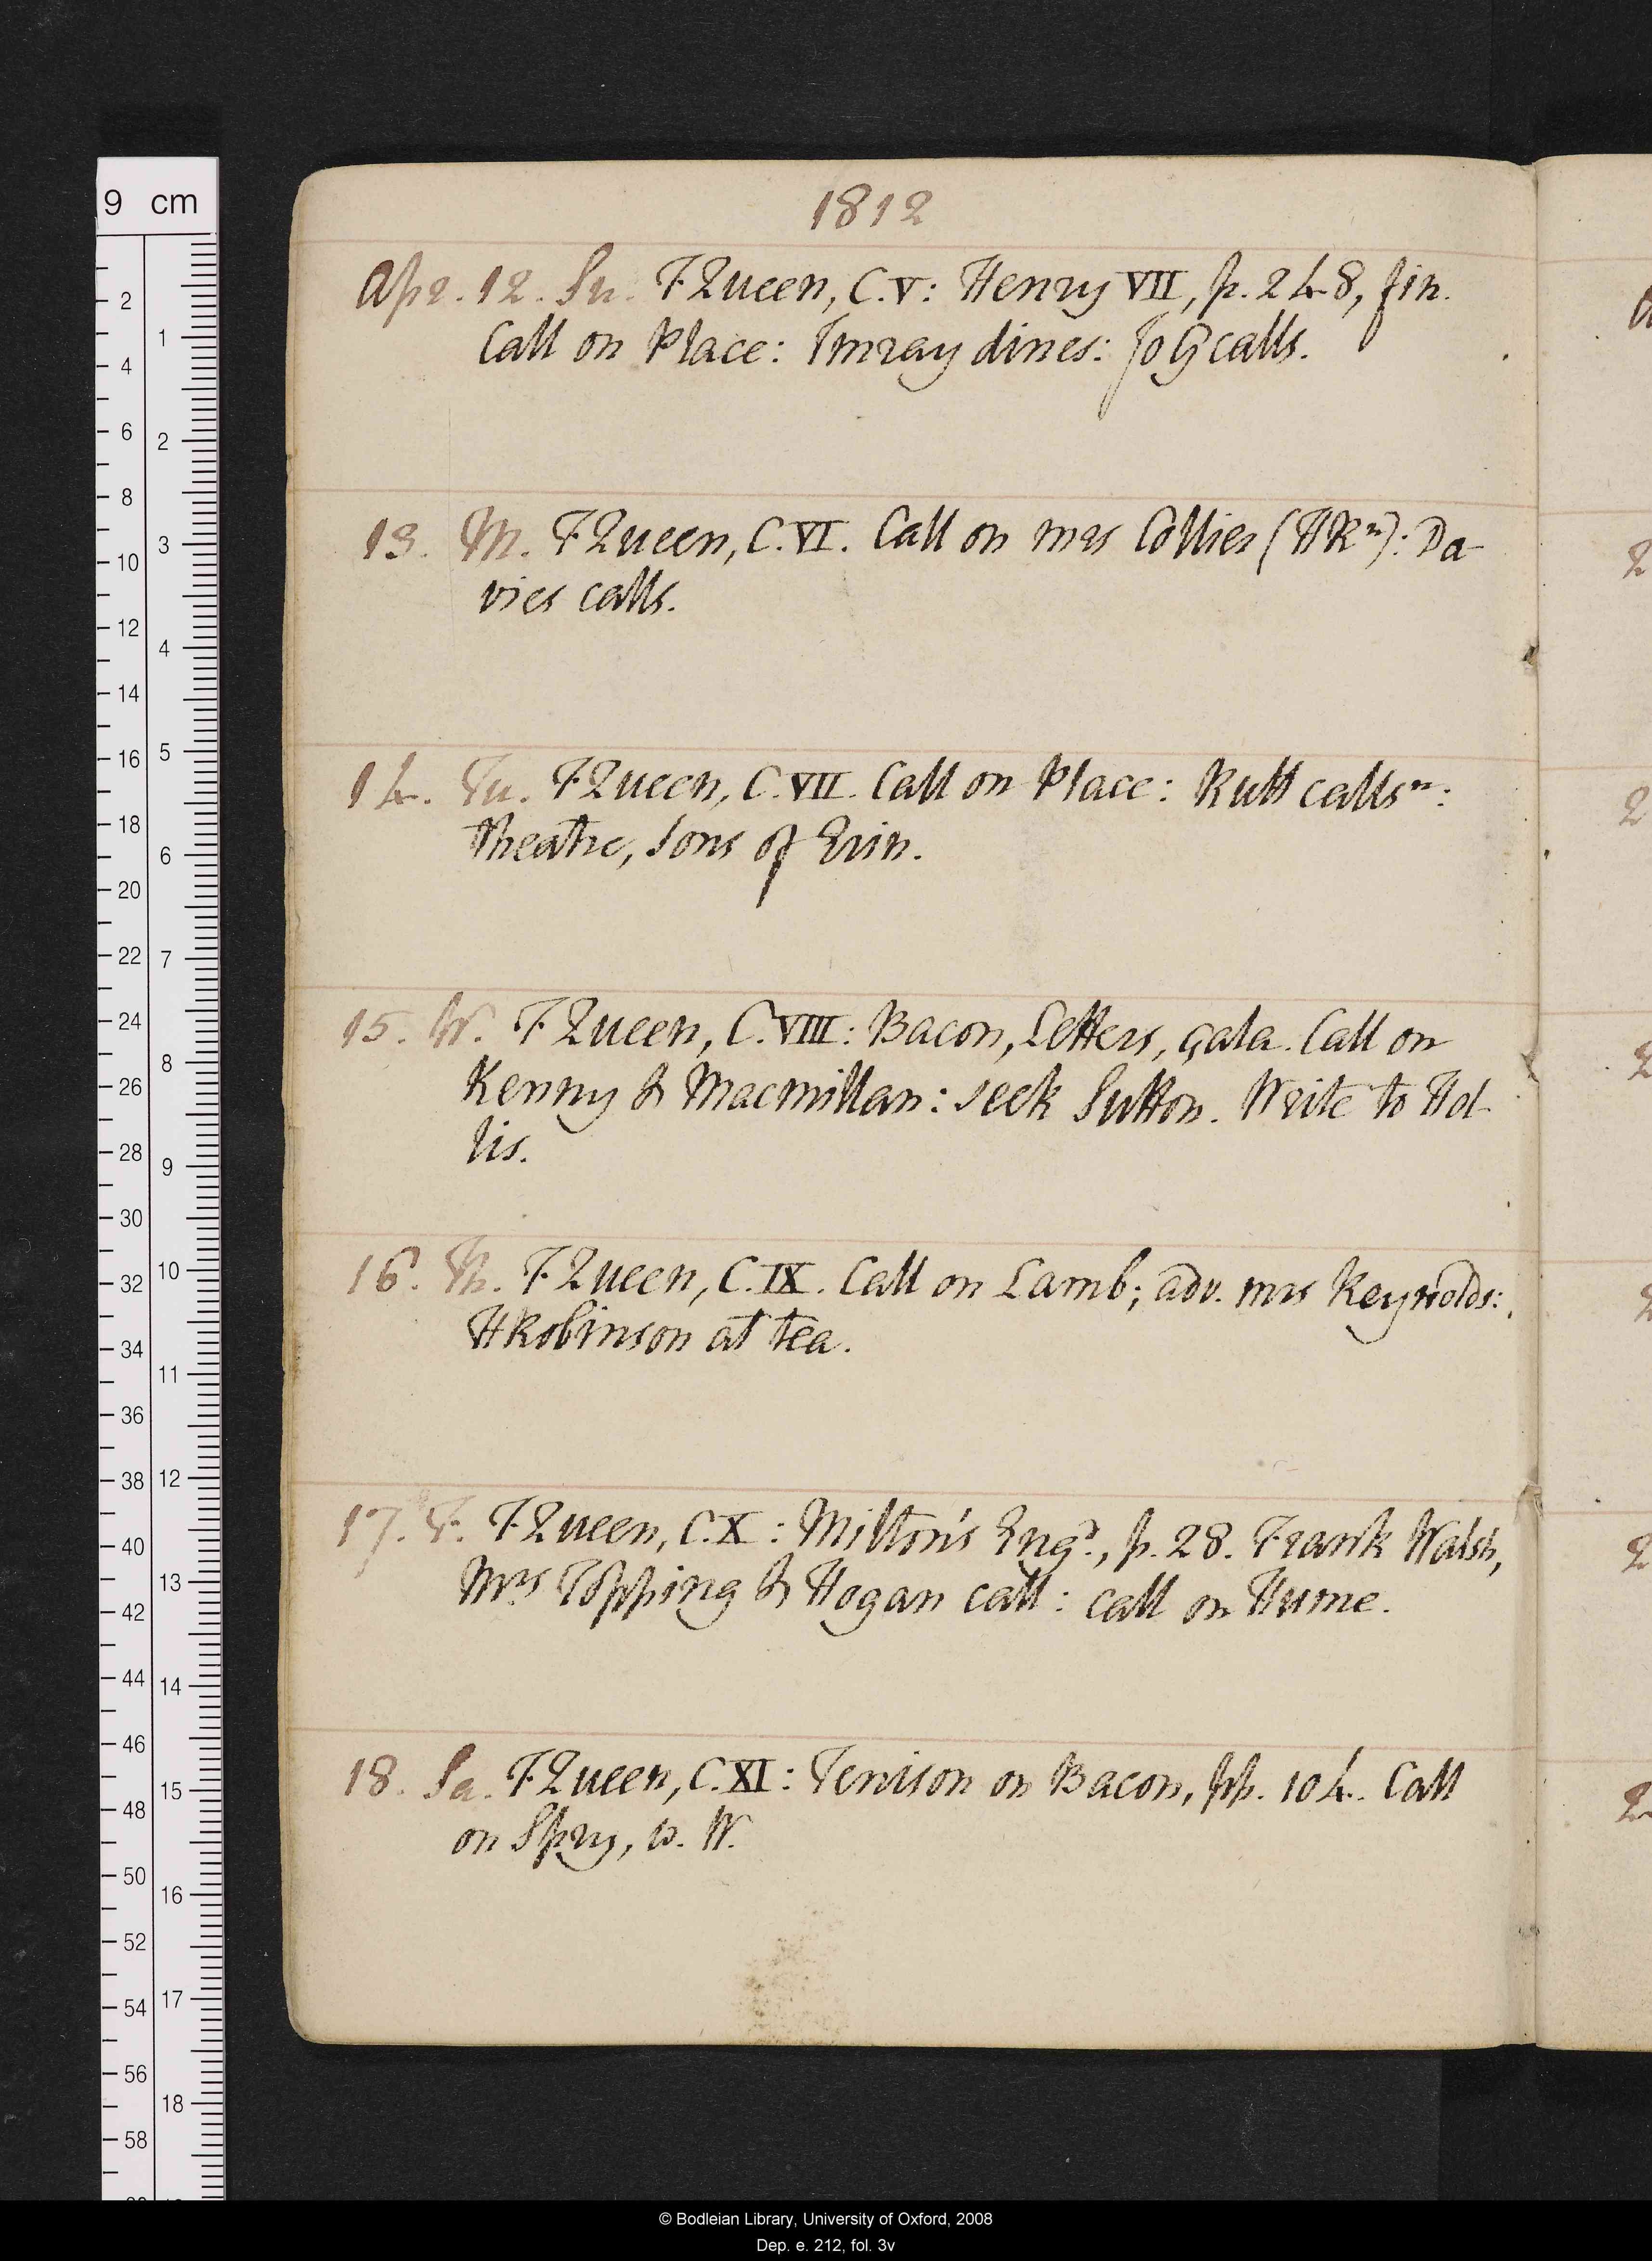 9 cm
1812
Apr. 12. Su. FQueen, C. V: Henry VII, p. 248, fin.
Call on Place: Imray dines: Jo G calls.
13. M. FQueen, C. VI. Call on mrs Collier (HRⁿ): Da-
vies calls.
14. Tu. FQueen, C. VII. Call on Place: Rutt callsⁿ:
theatre, Sons of Erin.
15. W. FQueen, C. VIII: Bacon, Letters, çala. Call on
Kenny & Macmillan: seek Sutton. Write to Hol-
lis.
16. Th. FQueen, C. IX. Call on Lamb; adv. mrs Reynolds:
HRobinson at tea.
17. F. FQueen, C. X: Milton's Engᵈ., p. 28. Frank Walsh,
Mrs Topping & Hogan call: call on Hume.
18. Sa. FQueen, C. XI: Tenison on Bacon, pp. 104. Call
on Spry, w. W.
2
4
6
8
10
12
14
16
18
20
22
24
26
28
30
32
34
36
38
40
42
44
46
48
50
52
54
56
58
1
2
3
4
5
6
7
8
9
10
11
12
13
14
15
16
17
18
© Bodleian Library, University of Oxford, 2008
Dep. e. 212, fol. 3v